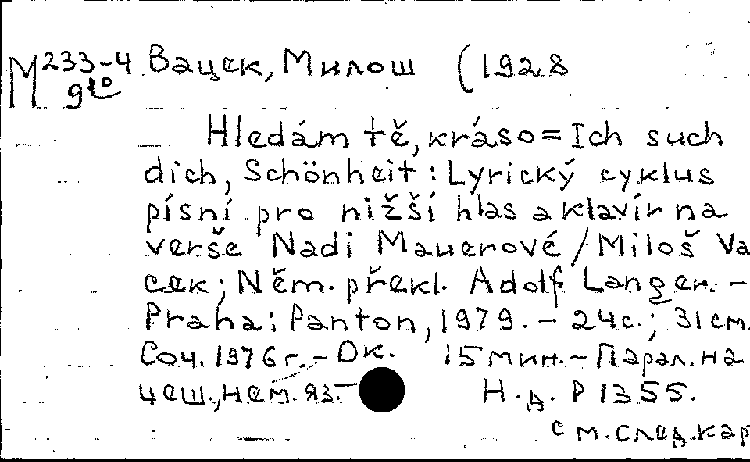 М 233-4 Вацек, Милош (1928
910
Hledám tě, kráso = Ich such
dich, Schönheit : Lyrický cyklus
písní pro nižší hlas a klavír na
verše Nadi Mauerové / Miloš Va
cek ; Něm. překl. Adolf Langer. –
Praha : Panton, 1979. – 24 с. ; 31 см.
Соч. 1976 г. – Ок. 15 мин. – Парал. на
чеш., нем. яз. – Н. д. P 1355.
см. след. кар